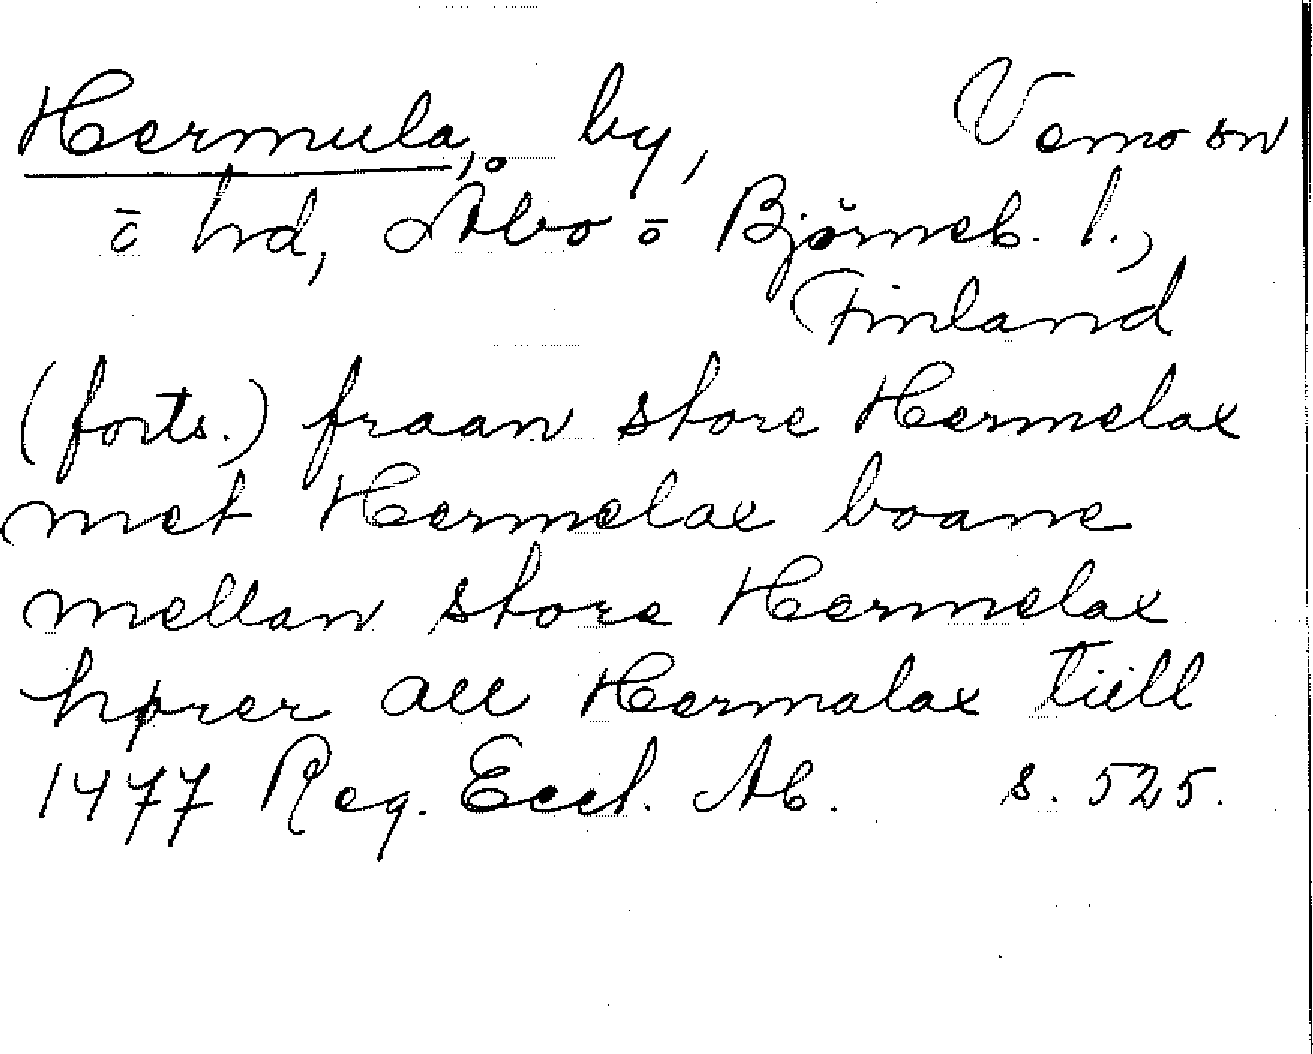 Hermula, by, Vemo sn
c̄ hd, Åbo ō Björneb. l.,
Finland
(forts.) fraan store Hermelax
met Hermelax boane
mellan store Hermelax
hører all Hermalax tiill
1477 Reg. Eccl. Ab. s. 525.